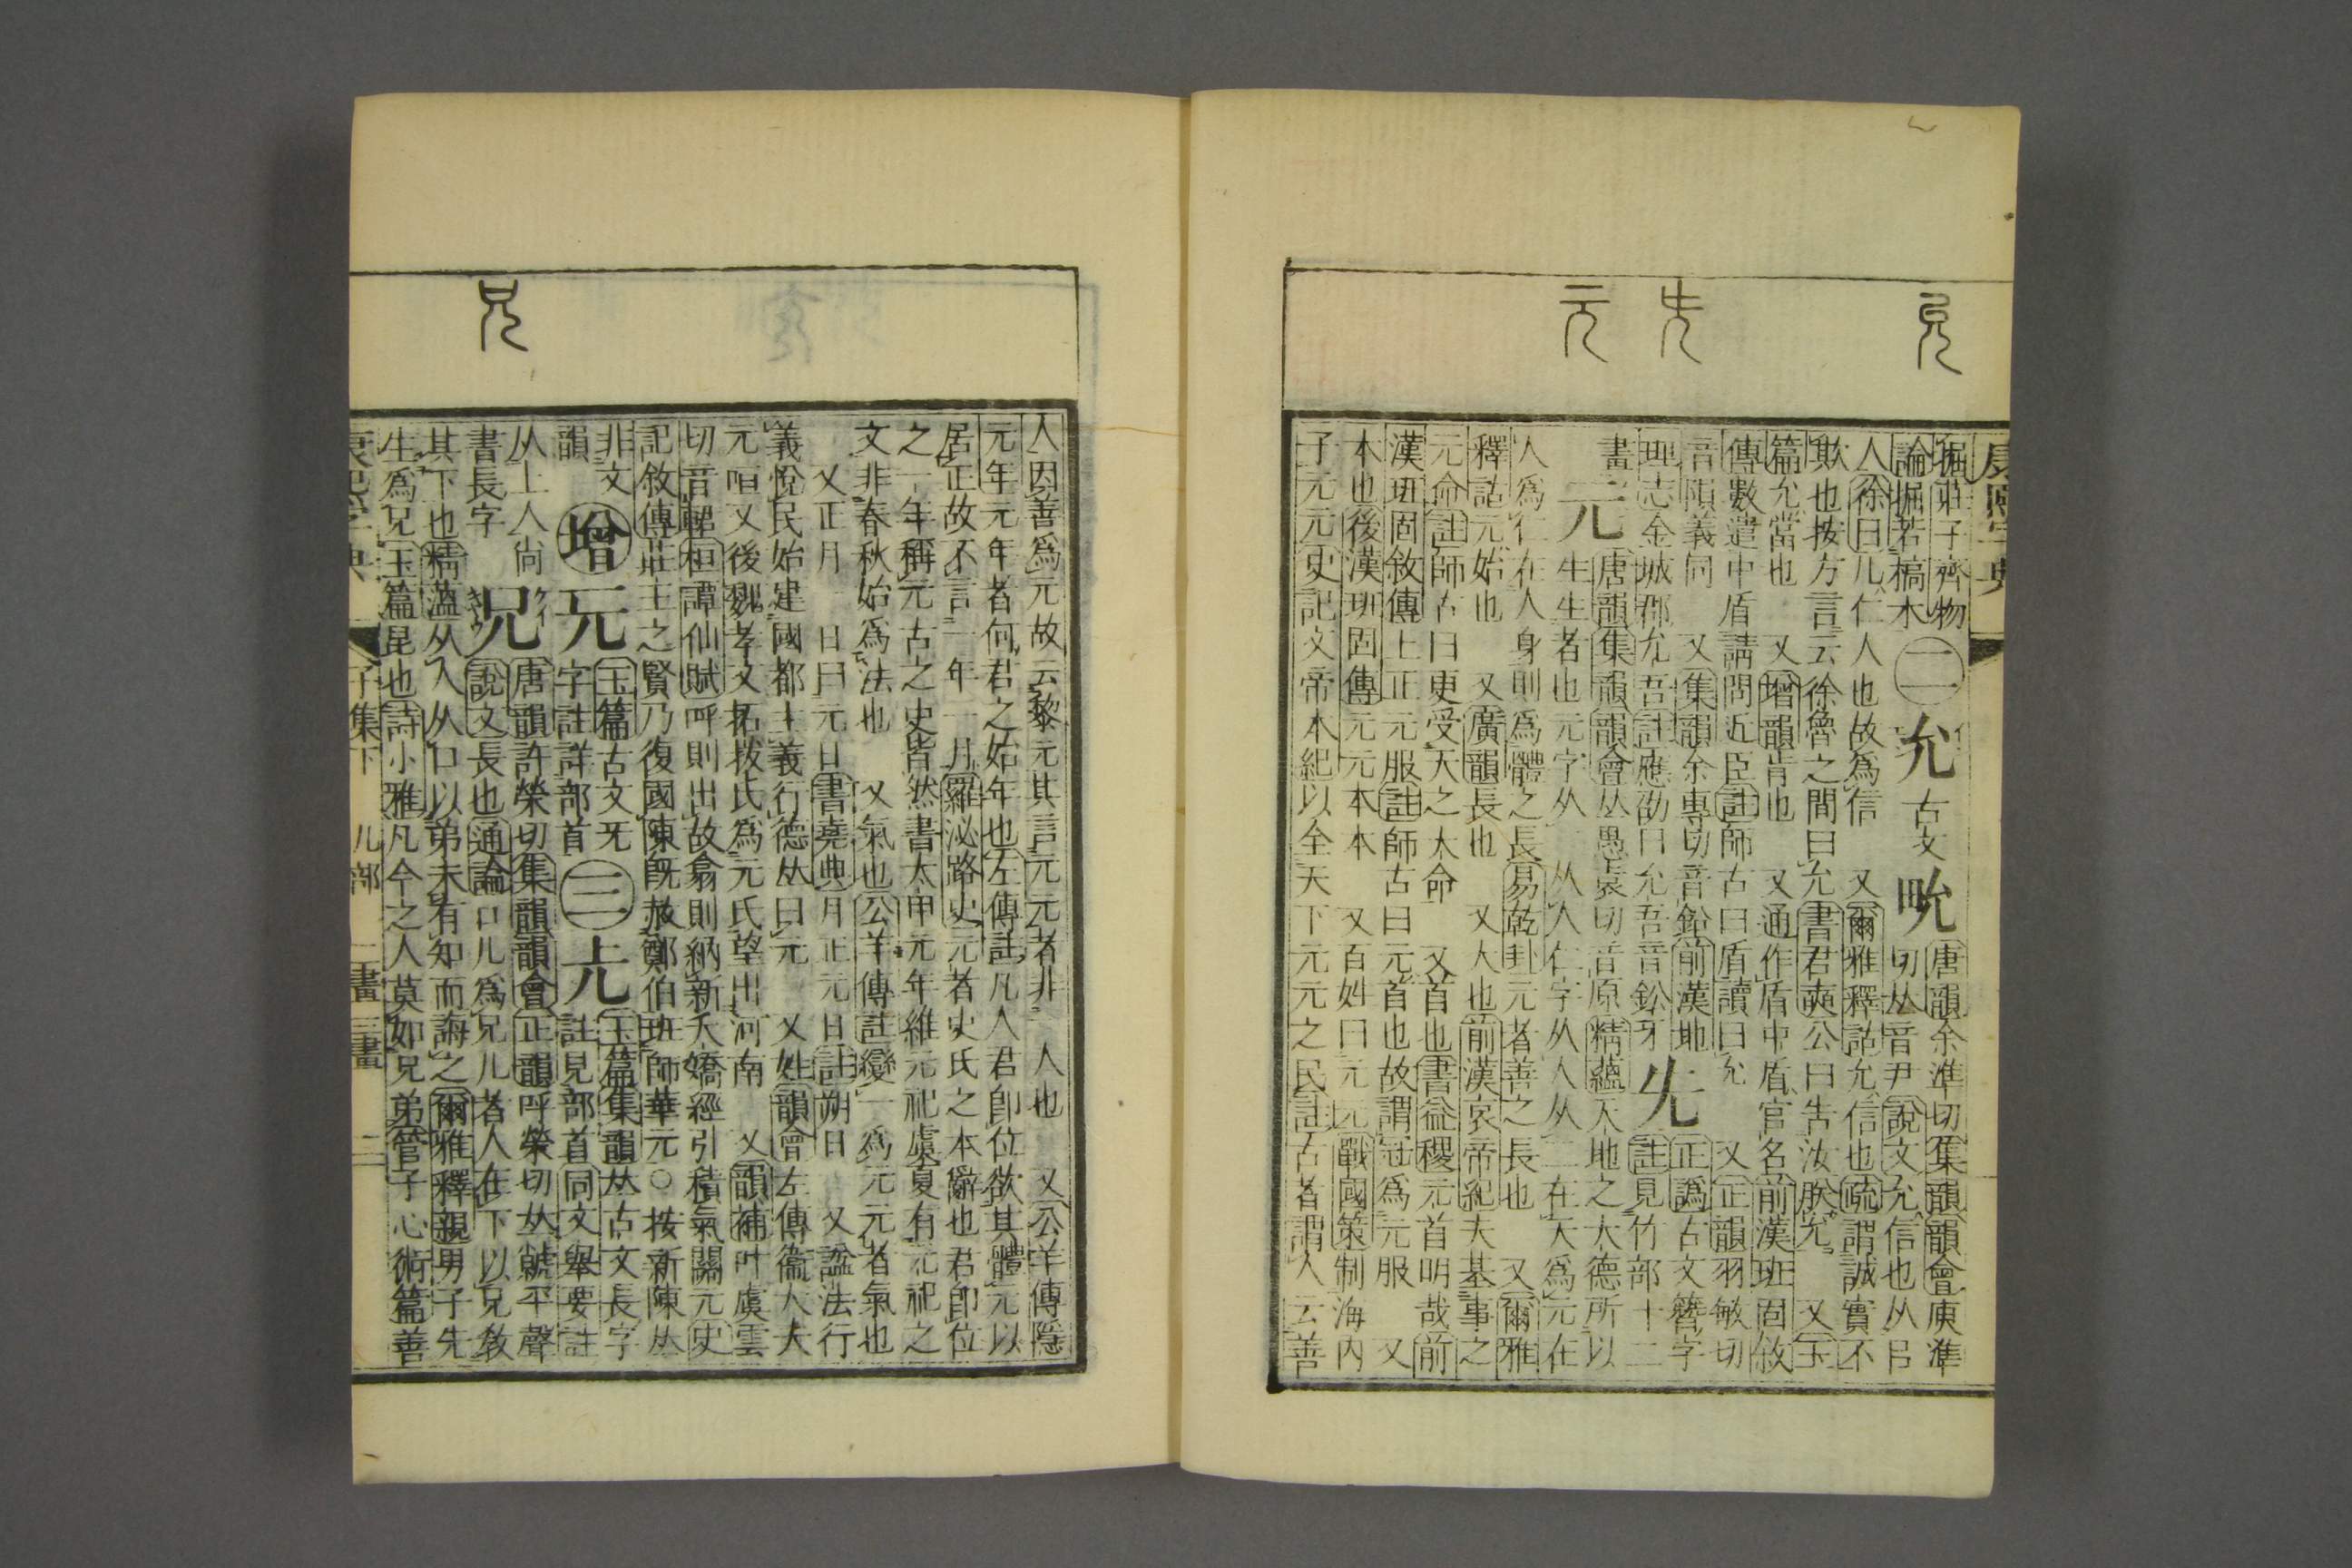 康熙字典
堀莊子齊物
論堀若槁木
二 允 古文 㽙
唐韻余準切集韻韻會庾準
切𠀤音尹說文允信也从㠯
人徐曰儿仁人也故爲信 又爾雅釋詁允信也疏謂誠實不
欺也按方言云徐魯之間曰允書君奭公曰告汝朕允 又玉
篇允當也 又增韻肯也 又通作盾中盾官名前漢班固敘
傳數遣中盾請問近臣註師古曰盾讀曰允 又正韻羽敏切
音隕義同 又集韻余專切音鉛前漢地
理志金城郡允吾註應劭曰允吾音鈆牙
兂
正譌古文簪字
註見竹部十二
畫
元
唐韻集韻韻會𠀤愚袁切音原精蘊天地之大德所以
生生者也元字从二从人仁字从人从二在天爲元在
人爲仁在人身則爲體之長易乾卦元者善之長也 又爾雅
釋詁元始也 又廣韻長也 又大也前漢哀帝紀夫基事之
元命註師古曰更受天之大命 又首也書益稷元首明哉前
漢班固敘傳上正元服註師古曰元首也故謂冠爲元服 又
本也後漢班固傳元元本本 又百姓曰元元戰國策制海內
子元元史記文帝本紀以全天下元元之民註古者謂人云善
允 兂 元
人因善爲元故云黎元其言元元者非一人也 又公羊傳隱
元年元年者何君之始年也左傳註凡人君卽位欲其體元以
居正故不言一年一月羅泌路史元者史氏之本辭也君卽位
之一年稱元古之史皆然書太甲元年維元祀虞夏有元祀之
文非春秋始爲法也 又氣也公羊傳註變一爲元元者氣也
又正月一日曰元日書堯典月正元日註朔日 又諡法行
義悅民始建國都主義行德𠀤曰元 又姓韻會左傳衞大夫
元咺又後魏孝文拓拔氏爲元氏望出河南 又韻補叶虞雲
切音輼桓譚仙賦呼則出故翕則納新夭矯經引積氣關元史
記敘傳莊王之賢乃復國陳旣赦鄭伯班師華元○按新陳𠀤
非文
韻
增
玉篇古文牙
字註詳部首
三
玉篇集韻𠀤古文長字
註見部首同文舉要註
从上人尙
書長字
兄
クイ
キヤウ
唐韻許榮切集韻韻會正韻呼榮切𠀤虩平聲
說文長也通論口儿爲兄儿者人在下以兄敎
其下也精薀从人从口以弟未有知而誨之爾雅釋親男子先
生爲兄玉篇昆也詩小雅凡今之人莫如兄弟管子心術篇善
兄
康熙字典 子集下 儿部 二畫 三畫 二